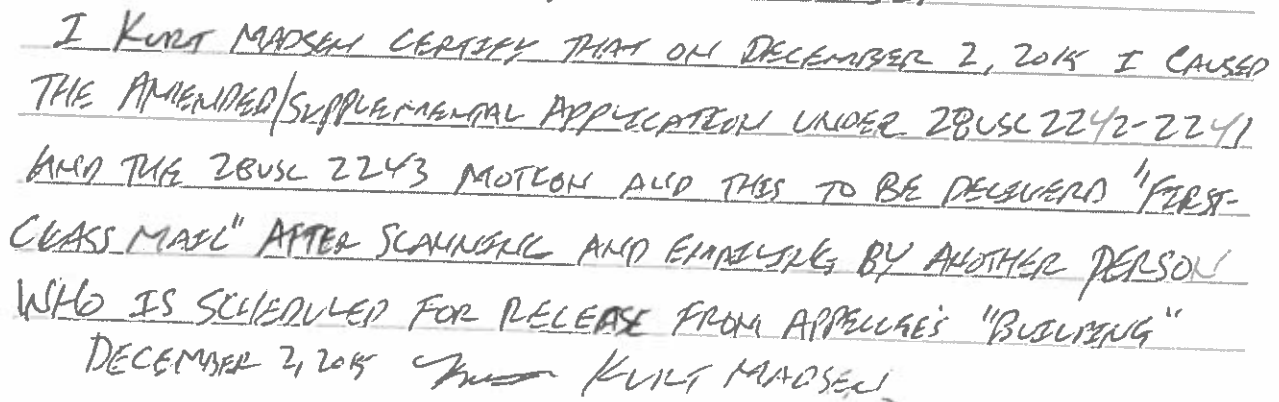 I KURT MADSEN CERTIFY THAT ON DECEMBER 2, 2015 I CAUSED
THE AMENDED/SUPPLEMENTAL APPLICATION UNDER 28USC 2242-2241
AND THE 28USC 2243 MOTION AND THIS TO BE DELIVERD "FIRST-
CLASS MAIL" AFTER SCANNING AND EMAILING BY ANOTHER PERSON
WHO IS SCHEDULED FOR RELEASE FROM APPELLEE'S "BUILDING"
DECEMBER 2, 2015 KURT MADSEN